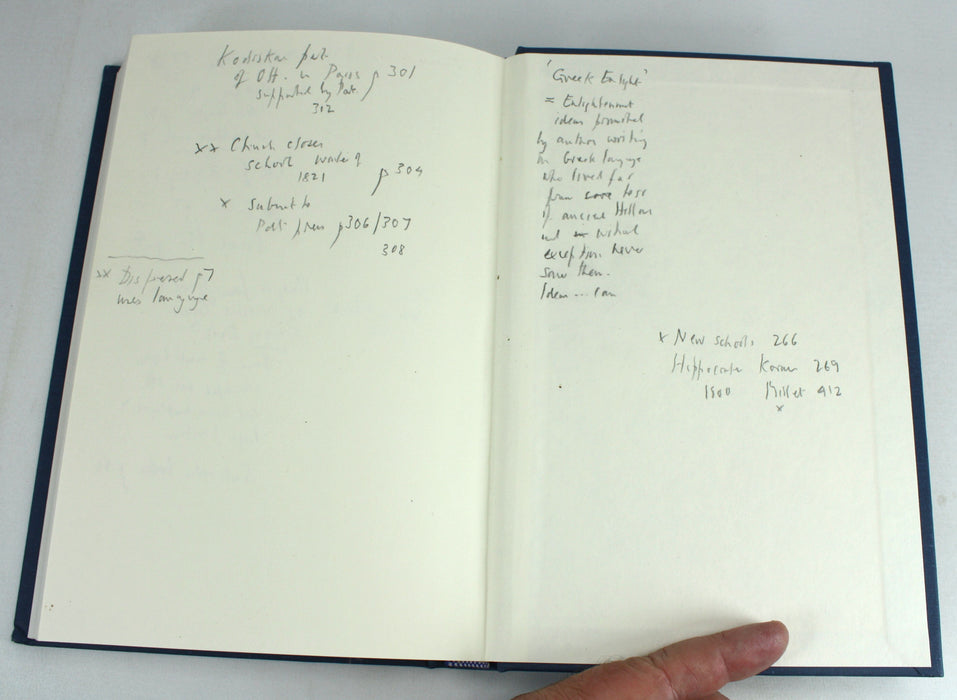 Kodiskas pat.
of Ott. in Paris p 301
supported by Pat.
312
xx Church closes
school wave of
1821
p 304
x Submit to
Patr. press p306/307
308
xx Dispersed p7
uses language
'Greek Enlight'
= Enlightenment
ideas promoted
by author writing
in Greek language
who lived far
from
of ancient Hellas
and
exception never
saw them.
Ideas ... can
x New schools 266
Hippocrates Korais 269
1800 Millet 412
x